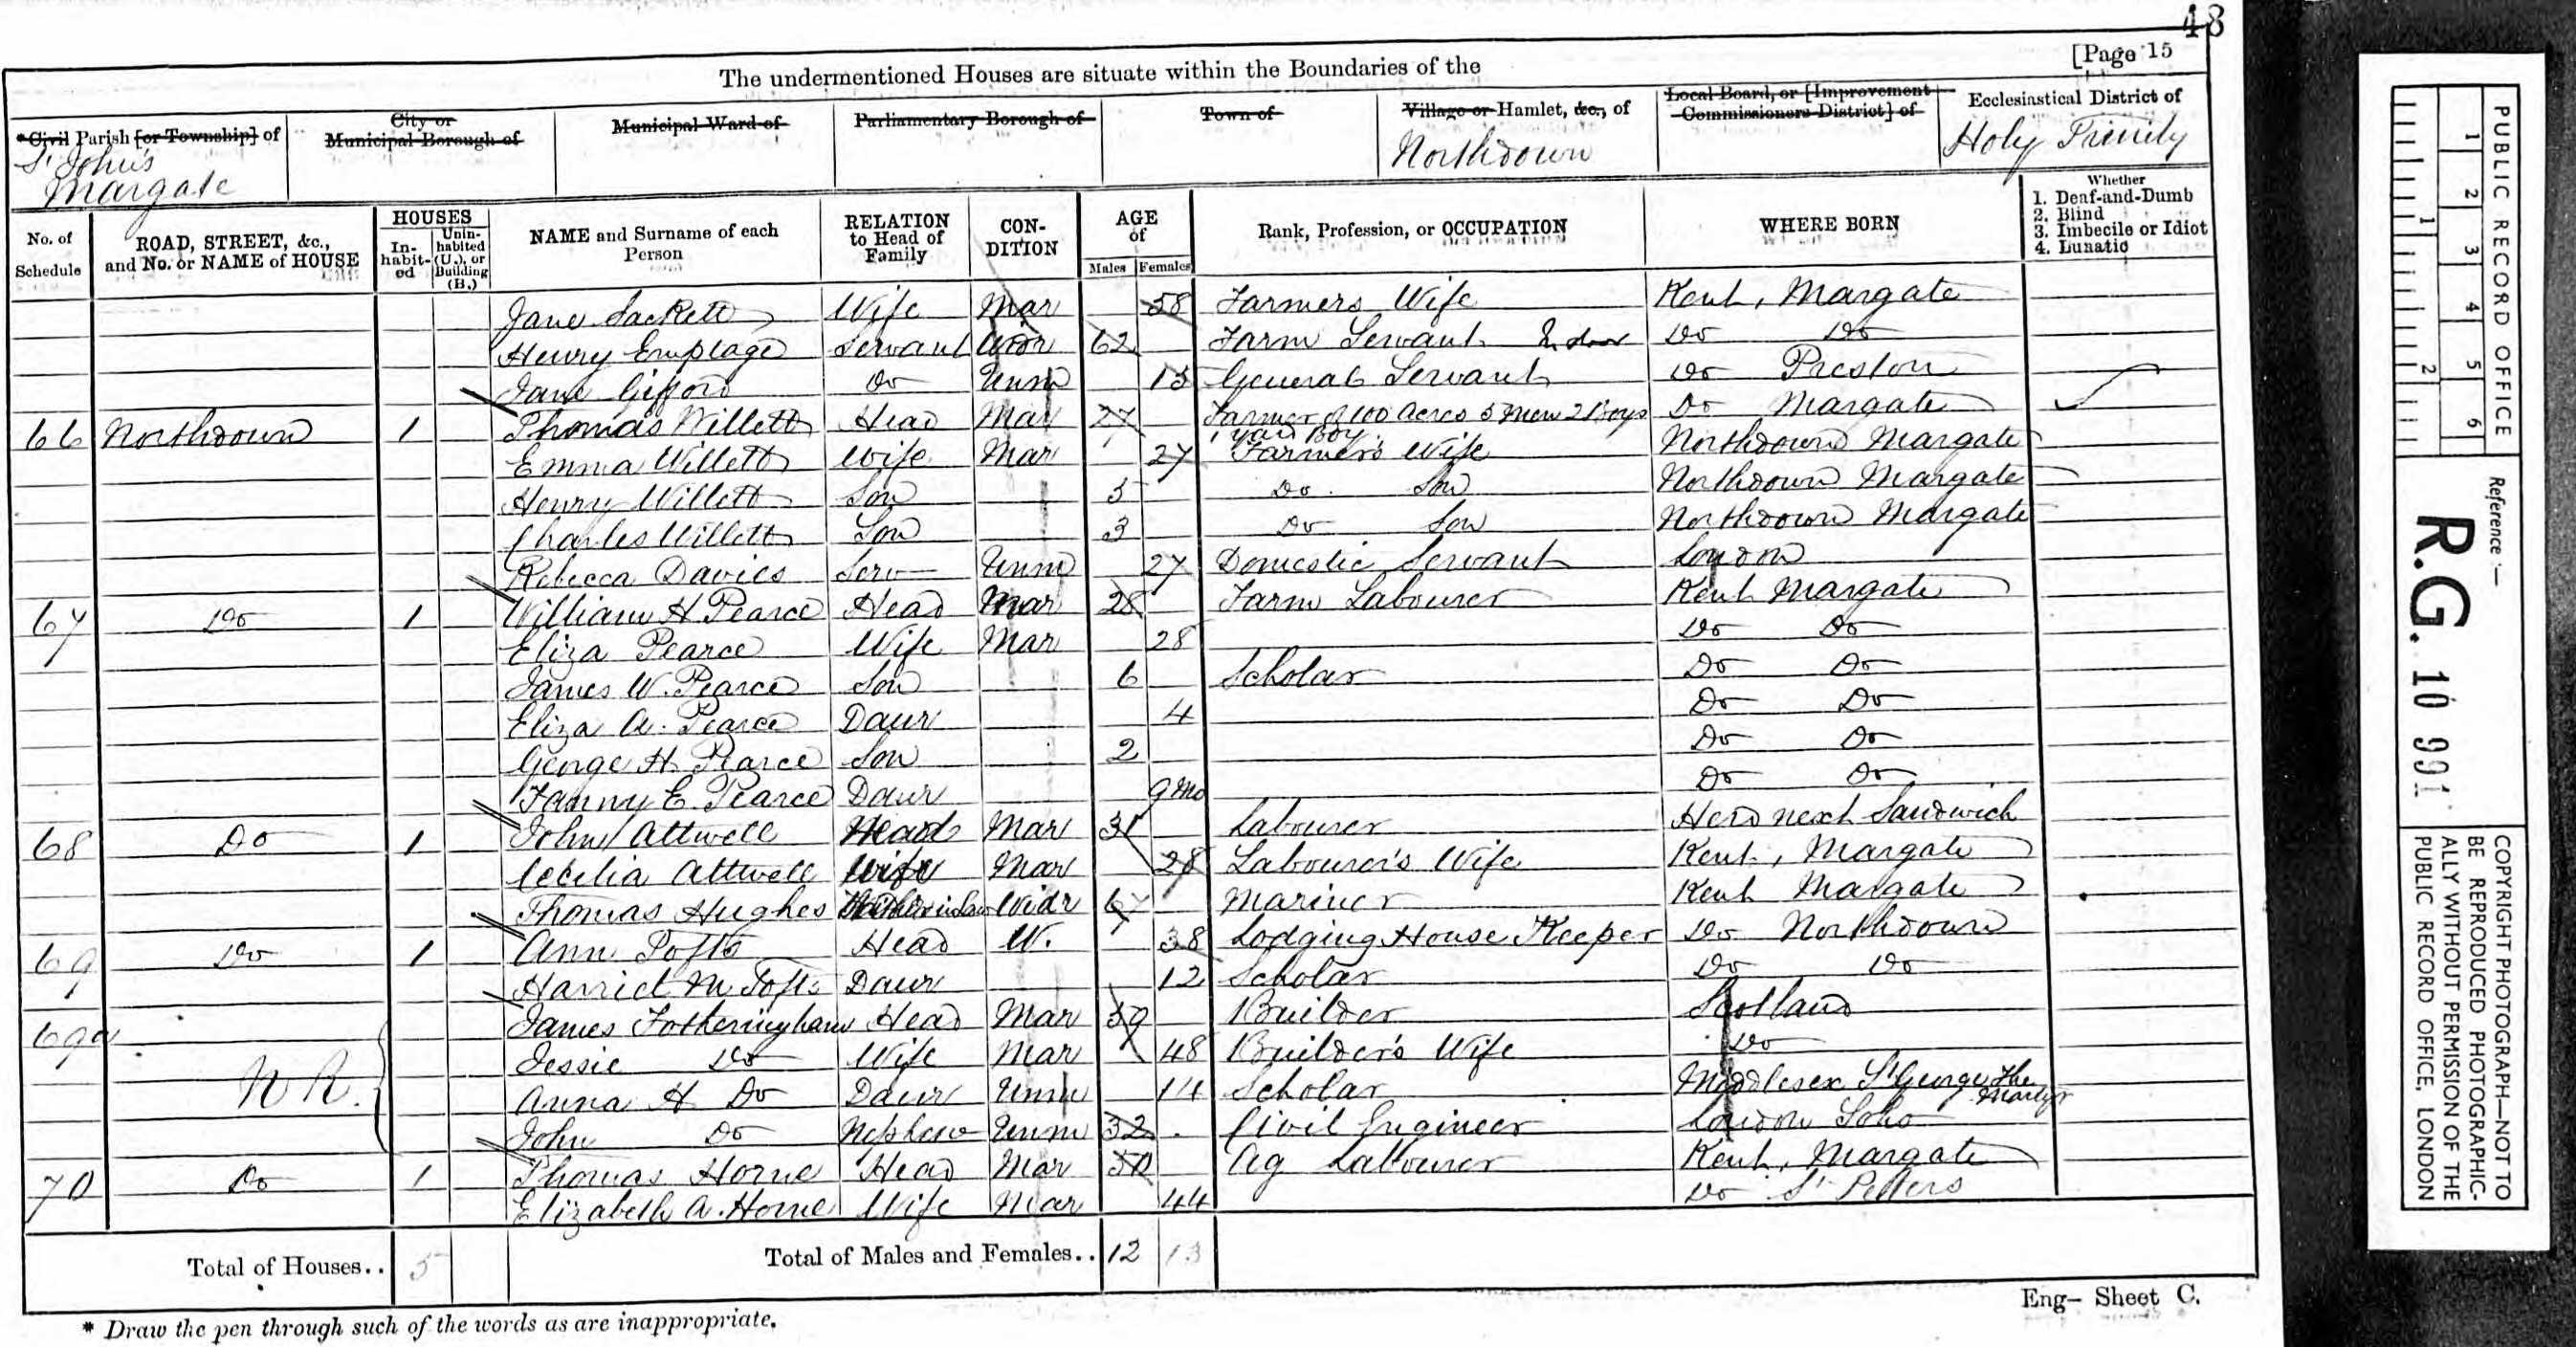 48
[Page 15
The undermentioned Houses are situate within the Boundaries of the
*Civil Parish [or Township] of
City or Municipal Borough of
Municipal Ward of
Parliamentary Borough of
Town of
Village or Hamlet, &c., of
Local Board, or [Improvement Commissioners District] of
Ecclesiastical District of
St John's Margate
Northdown
Holy Trinity
No. of Schedule
ROAD, STREET, &c., and No. or NAME of HOUSE
HOUSES
In-habit-ed
Unin-habited (U.), or Building (B.)
NAME and Surname of each Person
RELATION to Head of Family
CON-DITION
AGE of
Males
Females
Rank, Profession, or OCCUPATION
WHERE BORN
Whether
1. Deaf-and-Dumb
2. Blind
3. Imbecile or Idiot
4. Lunatic
Jane Sackett Wife Mar 58 Farmers Wife Kent, Margate
Henry Emptage Servant Widr 62 Farm Servant Indoor Do Do
Jane Gifford Do Unm 15 General Servant Do Preston
66 Northdown 1 Thomas Willett Head Mar 27 Farmer of 100 acres 5 Men 2 Boys Do Margate
1 yard Boy
Emma Willett Wife Mar 27 Farmer's Wife Northdown Margate
Henry Willett Son 5 Do Son Northdown Margate
Charles Willett Son 3 Do Son Northdown Margate
Rebecca Davies Serv Unm 27 Domestic Servant London
67 Do 1 William H Pearce Head Mar 28 Farm Labourer Kent Margate
Eliza Pearce Wife Mar 28 Do Do
James W. Pearce Son 6 Scholar Do Do
Eliza A. Pearce Daur 4 Do Do
George H. Pearce Son 2 Do Do
Fanny E. Pearce Daur 9 mo Do Do
68 Do 1 John Attwell Head Mar 31 Labourer next Sandwich
Cecilia Attwell Wife Mar 28 Labourer's Wife Kent, Margate
Thomas Hughes Father in law Widr 67 Mariner Kent Margate
69 Do 1 Ann Tofts Head W. 38 Lodging House Keeper Do Northdown
Harriet M Tofts Daur 12 Scholar Do Do
69a James Fotheringham Head Mar 59 Builder Scotland
Jessie Do Wife Mar 48 Builder's Wife Do
N R.
Anna H Do Daur Unm 14 Scholar Middlesex St George The Martyr
John Do Nephew Unm 32 Civil Engineer London Soho
70 Do 1 Thomas Horne Head Mar 50 Ag Labourer Kent, Margate
Elizabeth A. Horne Wife Mar 44 Do St Peters
Total of Houses.. 5
Total of Males and Females.. 12 13
Eng- Sheet C.
* Draw the pen through such of the words as are inappropriate.
PUBLIC RECORD OFFICE
1 2 3 4 5 6
1 2
Reference:-
R.G. 10 991
COPYRIGHT PHOTOGRAPH—NOT TO
BE REPRODUCED PHOTOGRAPHIC-
ALLY WITHOUT PERMISSION OF THE
PUBLIC RECORD OFFICE, LONDON